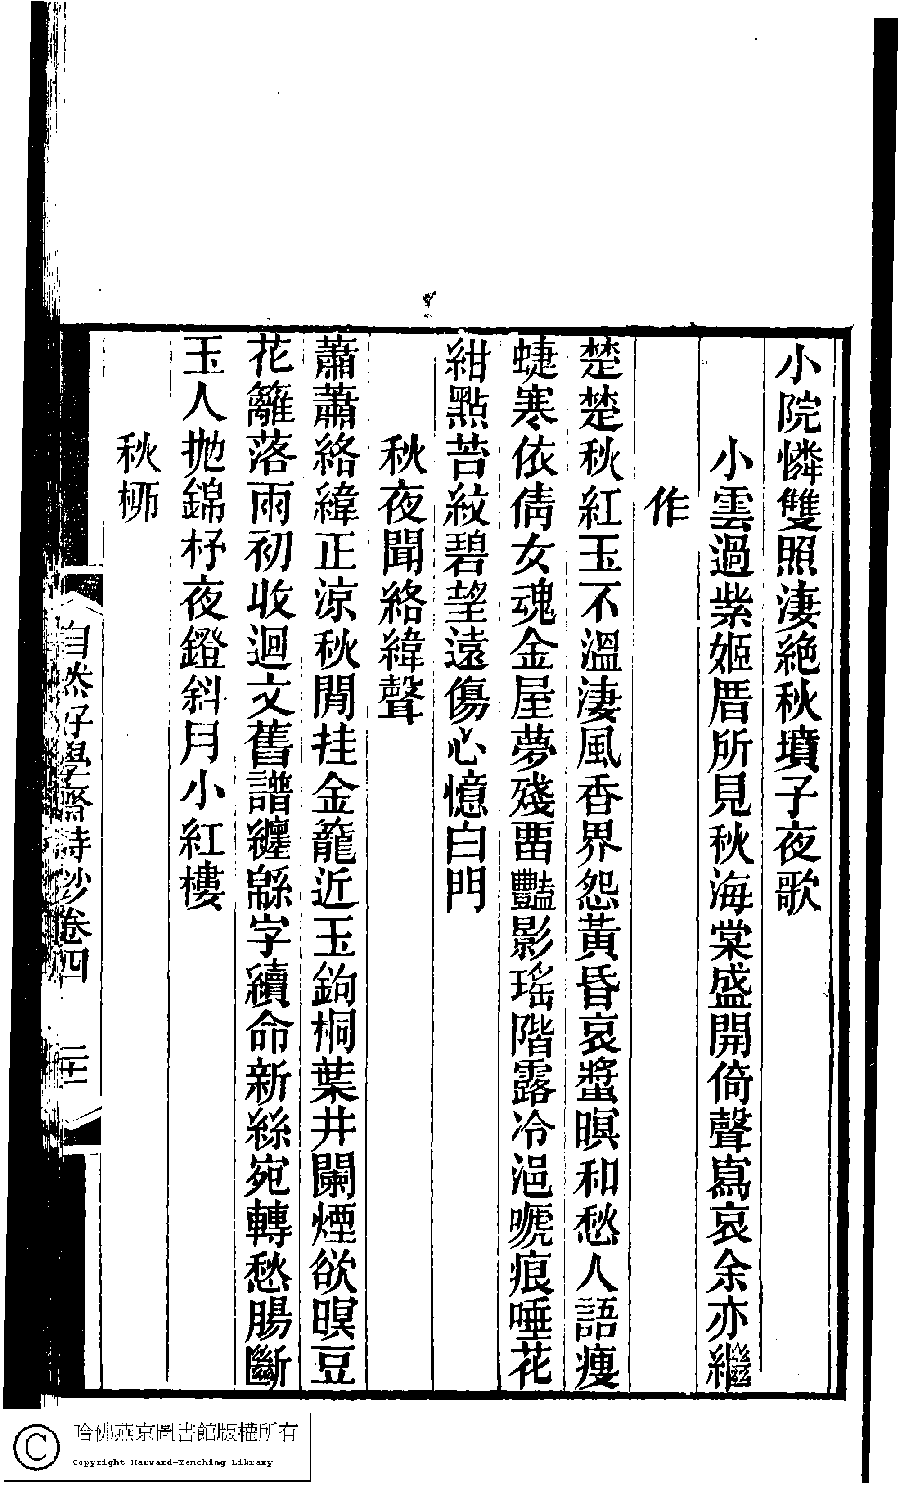 小院憐雙照淒絶秋墳子夜歌
小雲過紫姬厝所見秋海棠盛開倚聲寫哀余亦繼
作
楚楚秋紅玉不溫淒風香界怨黃昏哀螿暝和愁人語瘦
蜨寒依倩女魂金屋夢殘畱豔影瑤階露冷浥嗁痕唾花
紺點苔紋碧望遠傷心憶白門
秋夜聞絡緯聲
蕭蕭絡緯正涼秋閒挂金籠近玉鉤桐葉井闌煙欲暝豆
花籬落雨初收迴文舊譜纏緜字續命新絲宛轉愁腸斷
玉人抛錦杼夜鐙斜月小紅樓
秋栁
自然好學齋詩鈔卷四
二十一
哈佛燕京圖書館版權所有
Copyright Harvard-Yenching Library